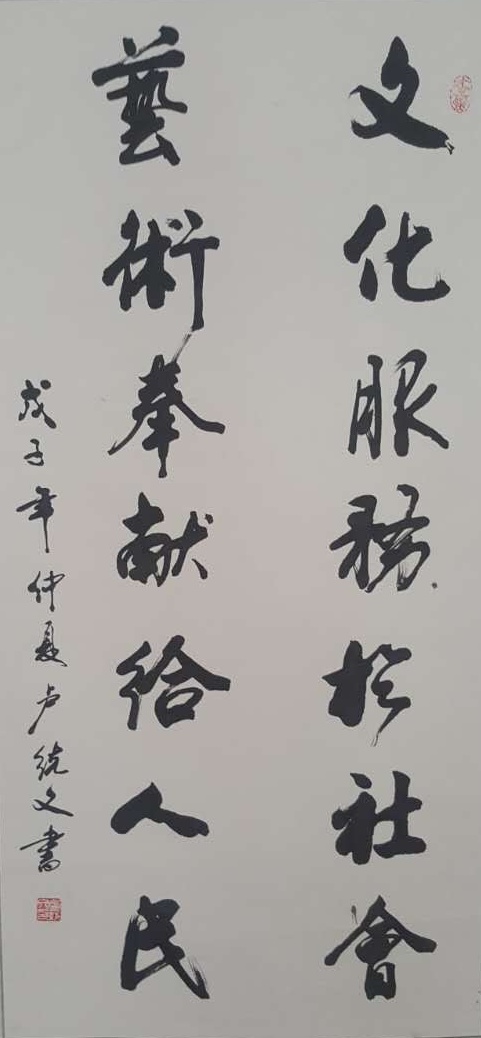 文化服務於社會
藝術奉献給人民
戊子年仲夏卢统文書